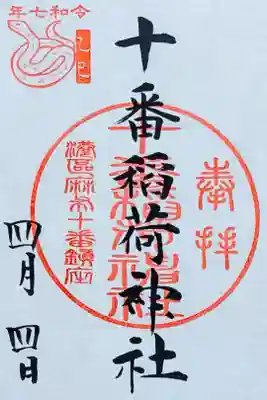 令和七年
乙巳
奉拝
十番稲荷神社
十番稲荷神社
港區麻布十番鎮座
四月四日